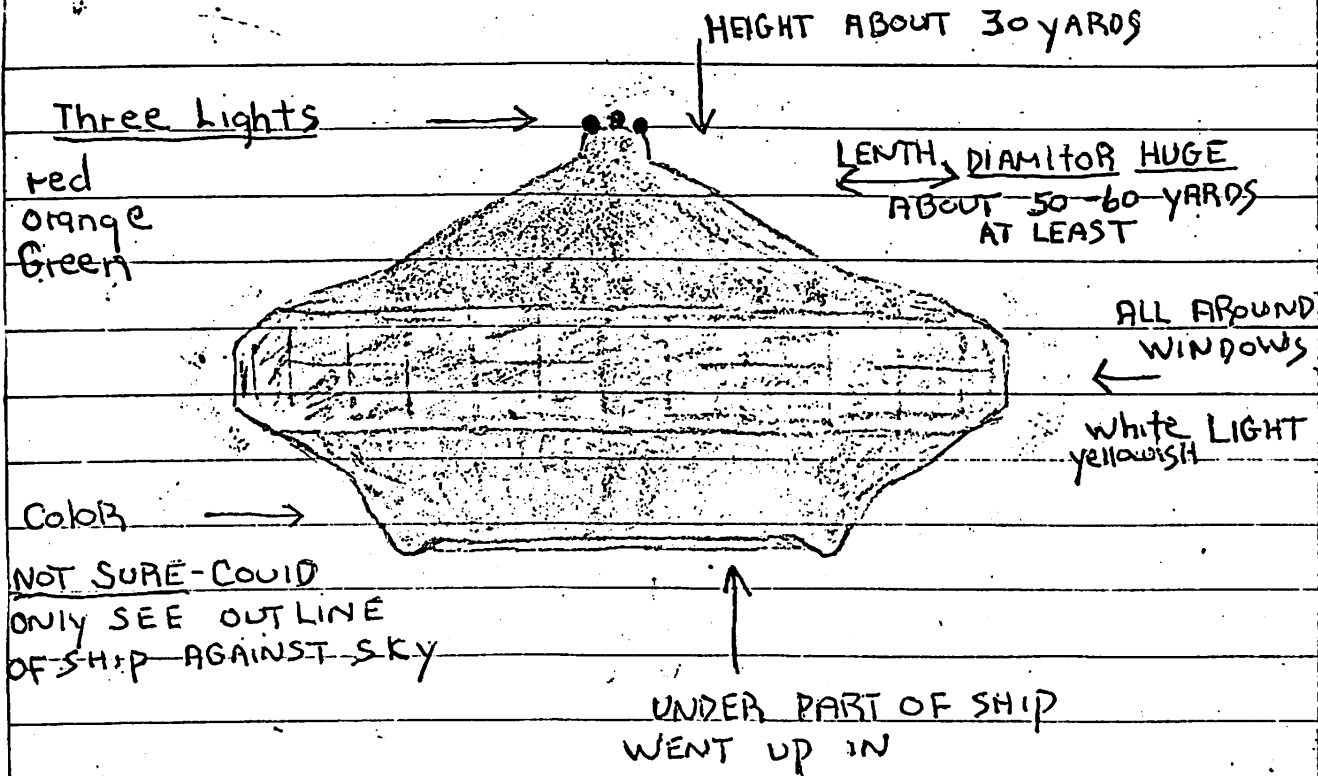 HEIGHT ABOUT 30 YARDS
Three Lights
red
orange
Green
LENTH, DIAMITOR HUGE
ABOUT 50-60 YARDS
AT LEAST
ALL AROUND
WINDOWS
white LIGHT
yellowish
COLOR
NOT SURE-COULD
ONLY SEE OUTLINE
OF SHIP AGAINST SKY
UNDER PART OF SHIP
WENT UP IN